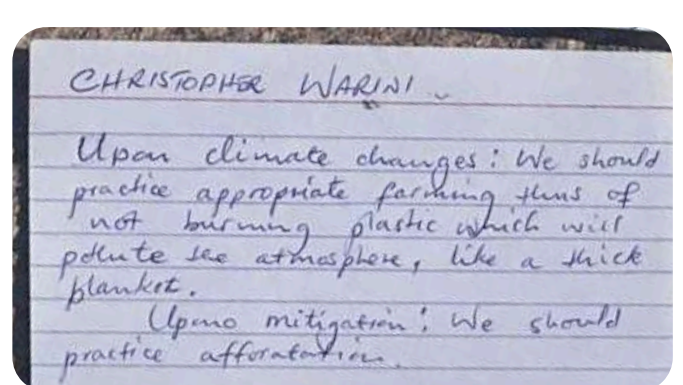 CHRISTOPHER WARINI
Upon climate changes: We should
practice appropriate farming thus of
not burning plastic which will
pollute the atmosphere, like a thick
blanket.
Upno mitigation: We should
practice afforatation.